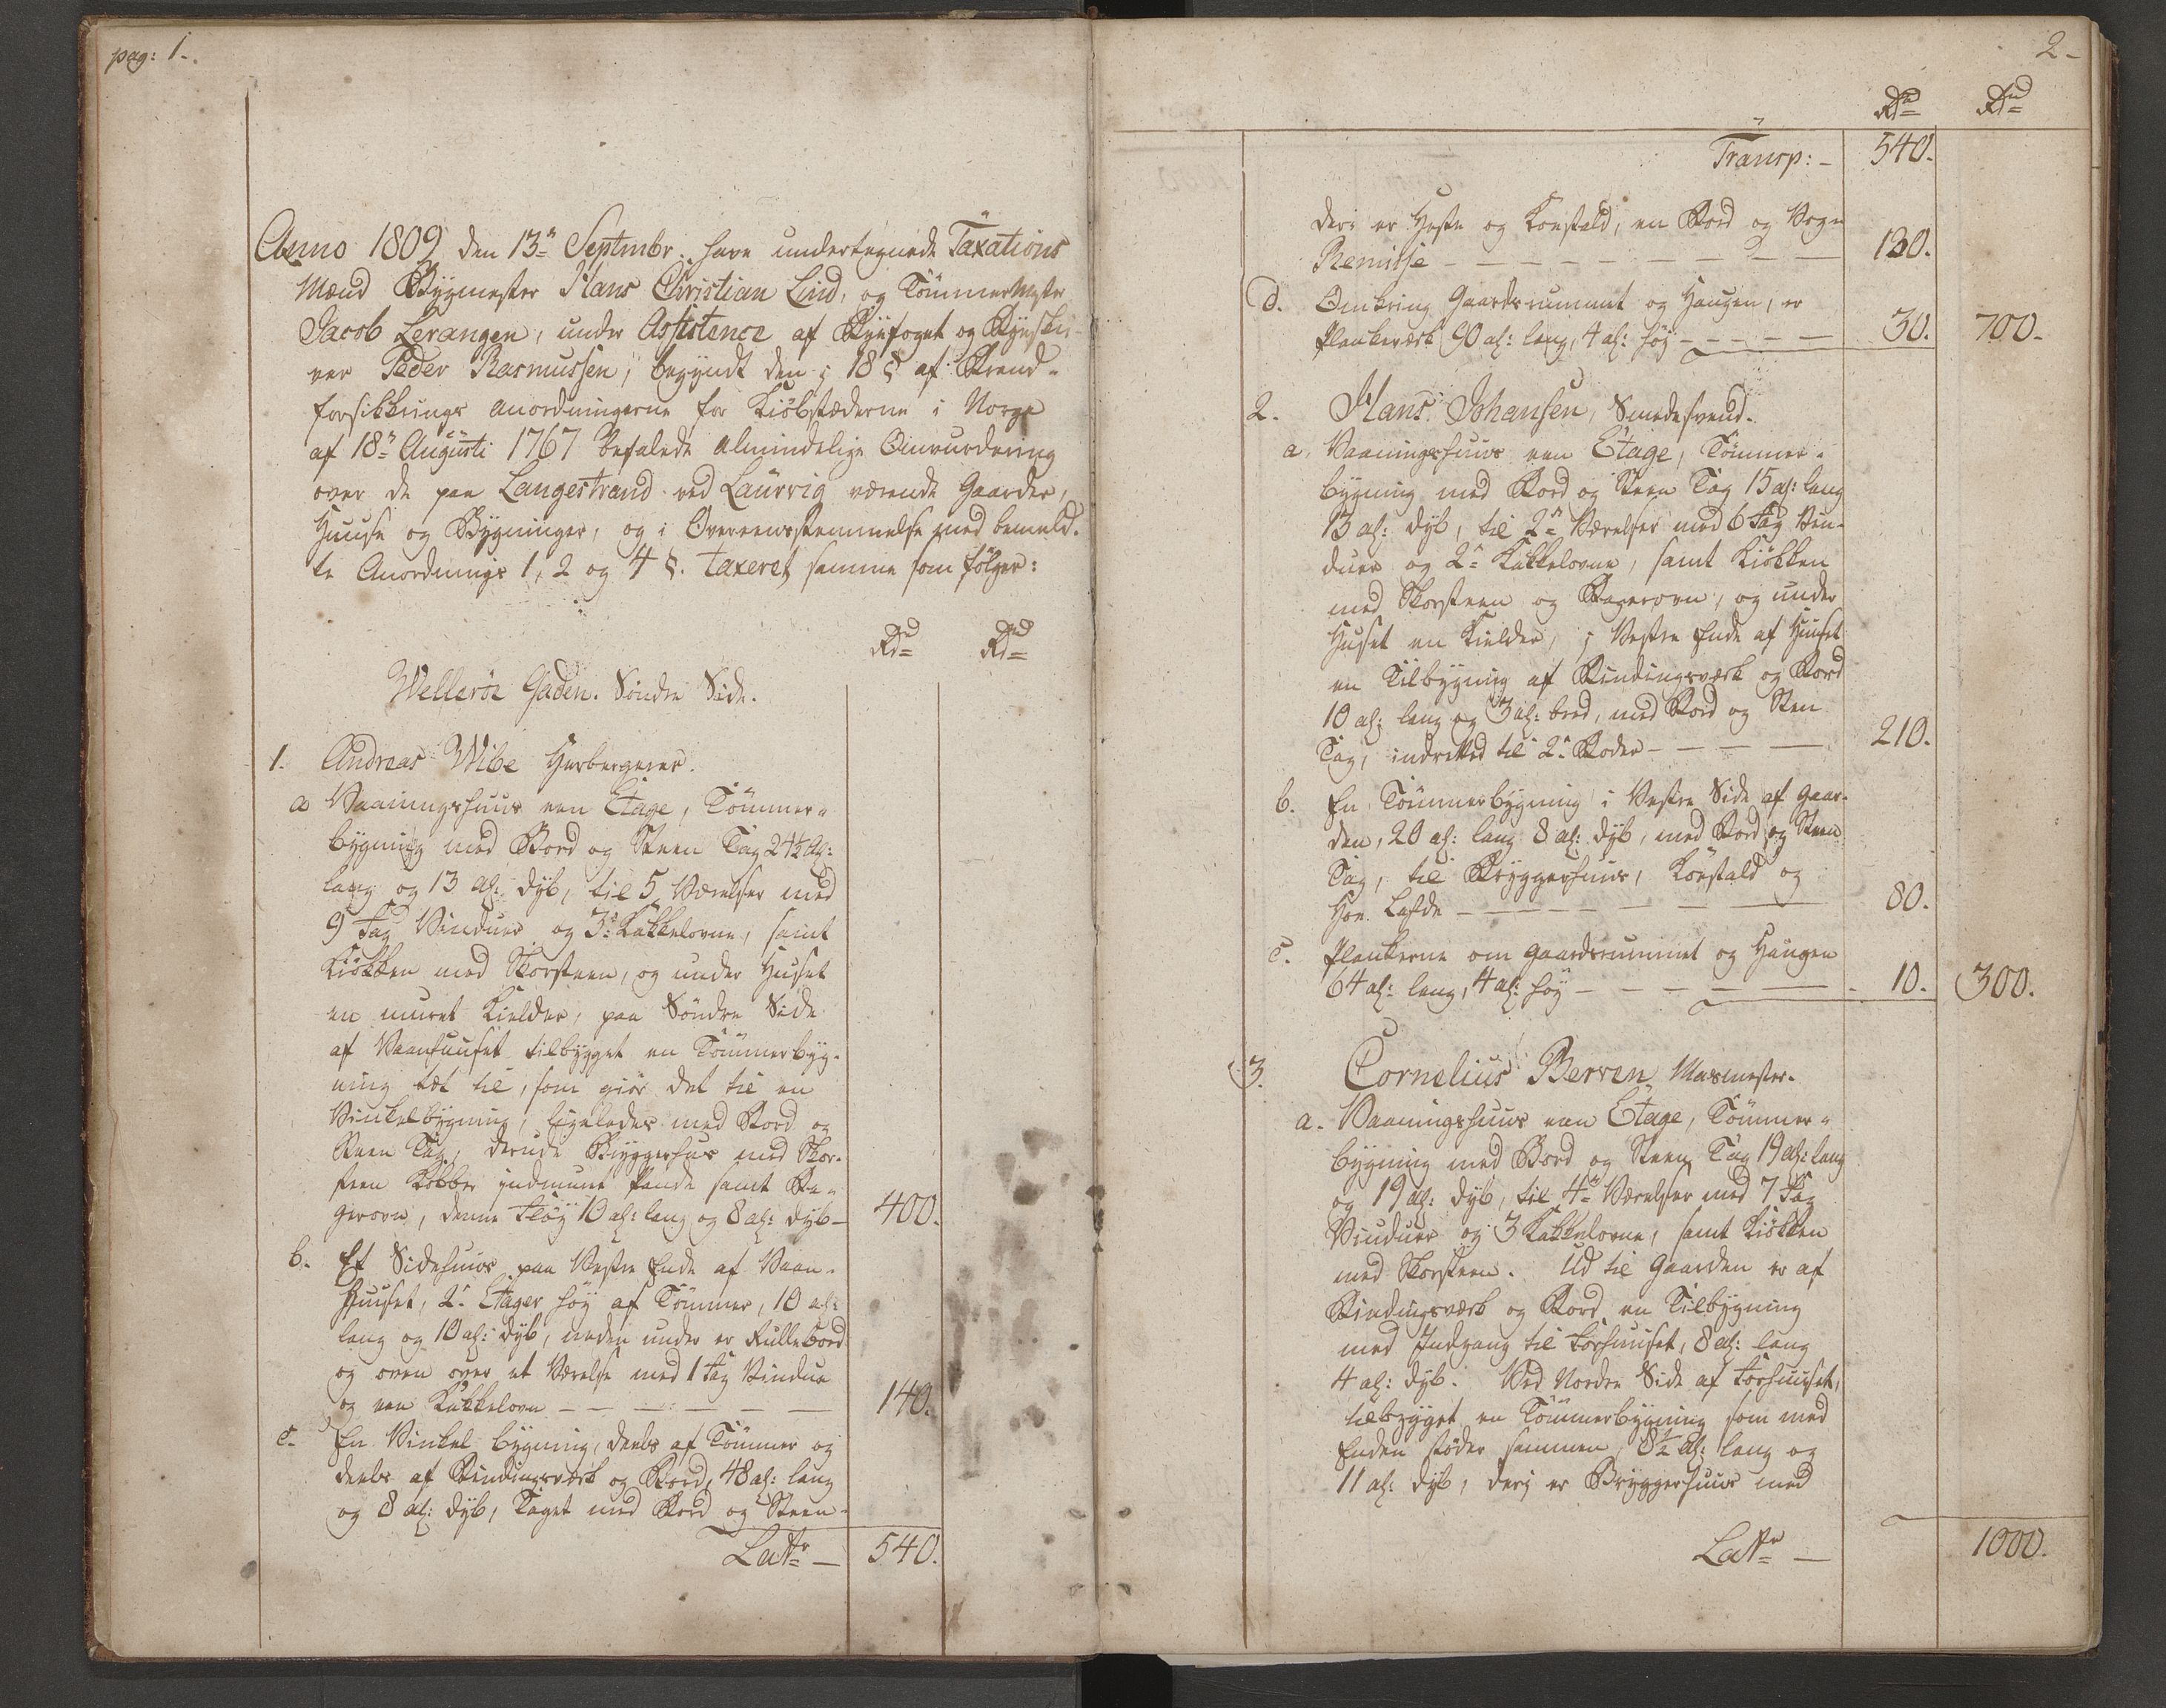 pag: 1.
Anno 1809 den 13de Septmbr. have undertegnede Taxations
Mænd Bygmester Hans Christian Lind, og Tømmermester
Jacob Lerangen, under Assistence af Byefoget og Byeskri-
ver Peder Rasmussen, begyndt den i 18 § af Brand-
forsikkrings anordningerne for Kiöbstæderne i Norge
af 18de Augusti 1767 befalede almindelige Omvurdering
over de paa Langestrand ved Laurvig værende Gaarder,
Huuse og Bygninger, og i Overeensstemmelse med bemeld-
te Anordnings 1, 2 og 4 §. taxeret samme som fölger:
Rd Rd
Welleröe Gaden. Söndre Side.
1. Andreas Wibe Herbergerer.
a Vaaningshuus een Etage, Tömmer-
bygning med Bord og Steen Tag 24½ Al:
lang og 13 Al: dyb, til 5 Værelser med
9 Fag Vinduer og 3 Kakkelovne, samt
Kiökken med Skorsteen, og under Huset
en muret Kielder, paa Söndre Side
af Vaanhuuset tilbygget en Tömmerbyg-
ning tæt til, som giör det til en
Vinkelbygning, ligeledes med Bord og
Steen Tag, derudi Bryggerhus med Skor-
steen Kobber indmuret Pande samt Ba-
gerovn, denne Flöy 10 al: lang og 8 al: dyb - 400.
b. Et Sidehuus paa Vestre Ende af Vaan-
Huuset, 2 Etager höy af Tömmer, 10 al:
lang og 10 al: dyb, neden under er Rullebord
og oven over et Værelse med 1 Fag Vindue
og een Kakkelovn - - - - - - 140.
c. En Vinkel bygning, deels af Tömmer og
deels af Bindingsværk og Bord, 48 al: lang
og 8 al: dyb, Taget med Bord og Steen-
Lattr - 540.
2-
Rd Rd
Transp: - 540.
deri er Heste og Koestald, en Bord og Vogn
Remisse - - - - - - - - 130.
d. Omkring Gaardsrummet og Haugen, er
Plankeværk 90 al: lang, 4 al: höy - - - - - 30. 700.
2. Hans Johansen, Smedesvend.
a. Vaaningshuus een Etage, Tömmer-
bygning med Bord og Steen Tag 15 al: lang
13 al: dyb, til 2de Værelser med 6 Fag Vin-
duer og 2 Kakkelovne, samt Kiökken
med Skorsteen og Bagerovn, og under
Huset en Kielder, i Vestre Ende af Huuset
en Tilbygning af Bindingsværk og Bord
10 al: lang og 3 al: bred, med Bord og Steen
Tag, indretted til 2 Boder - - - - 210.
b. En Tömmerbygning i Vestre Side af Gaar-
den, 20 al: lang 8 al: dyb, med Bord og Steen
Tag, til Bryggerhuus, Koestald og
Höe Lafde - - - - - - - 80.
c. Plankerne om Gaardsrummet og Haugen
64 al: lang, 4 al: höy - - - - - - 10. 300.
3. Cornelius Berven Masmester.
a. Vaaningshuus een Etage, Tömmer-
bygning med Bord og Steen Tag 19 Al: lang
og 19 al: dyb, til 4de Værelser med 7 Fag
Vinduer og 3 Kakkelovne, samt Kiökken
med Skorsteen. Ud til Gaarden er af
Bindingsværk og Bord en Tilbygning
med Indgang til Forhuuset, 8 al: lang
4 al: dyb. Ved Nordre Side af Forhuuset,
tilbygget en Tömmerbygning som med
Enden stöder sammen, 8½ Al: lang og
11 al: dyb, deri er Bryggerhuus med
Lattr - 1000.